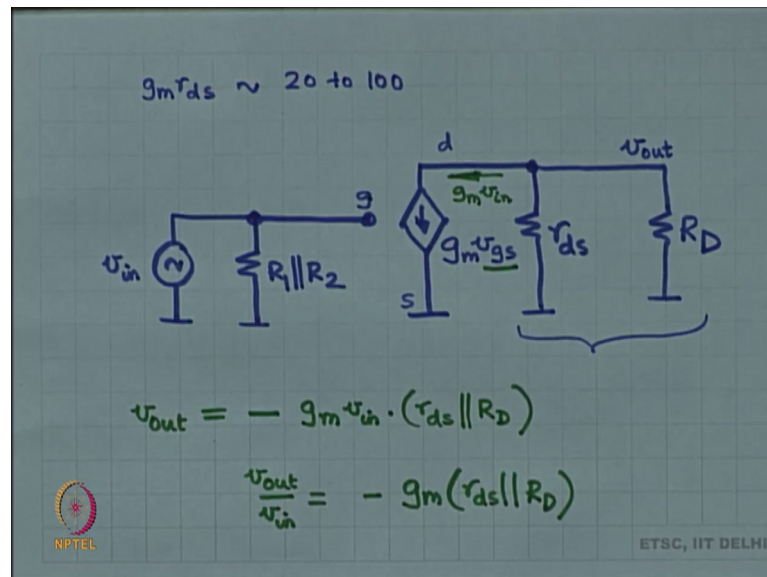 gmrds ~ 20 to 100
d
vout
gmvin
g
vin
R1||R2
gmvgs
rds
RD
s
vout = - gmvin · (rds||RD)
vout/vin = - gm(rds||RD)
NPTEL
ETSC, IIT DELHI